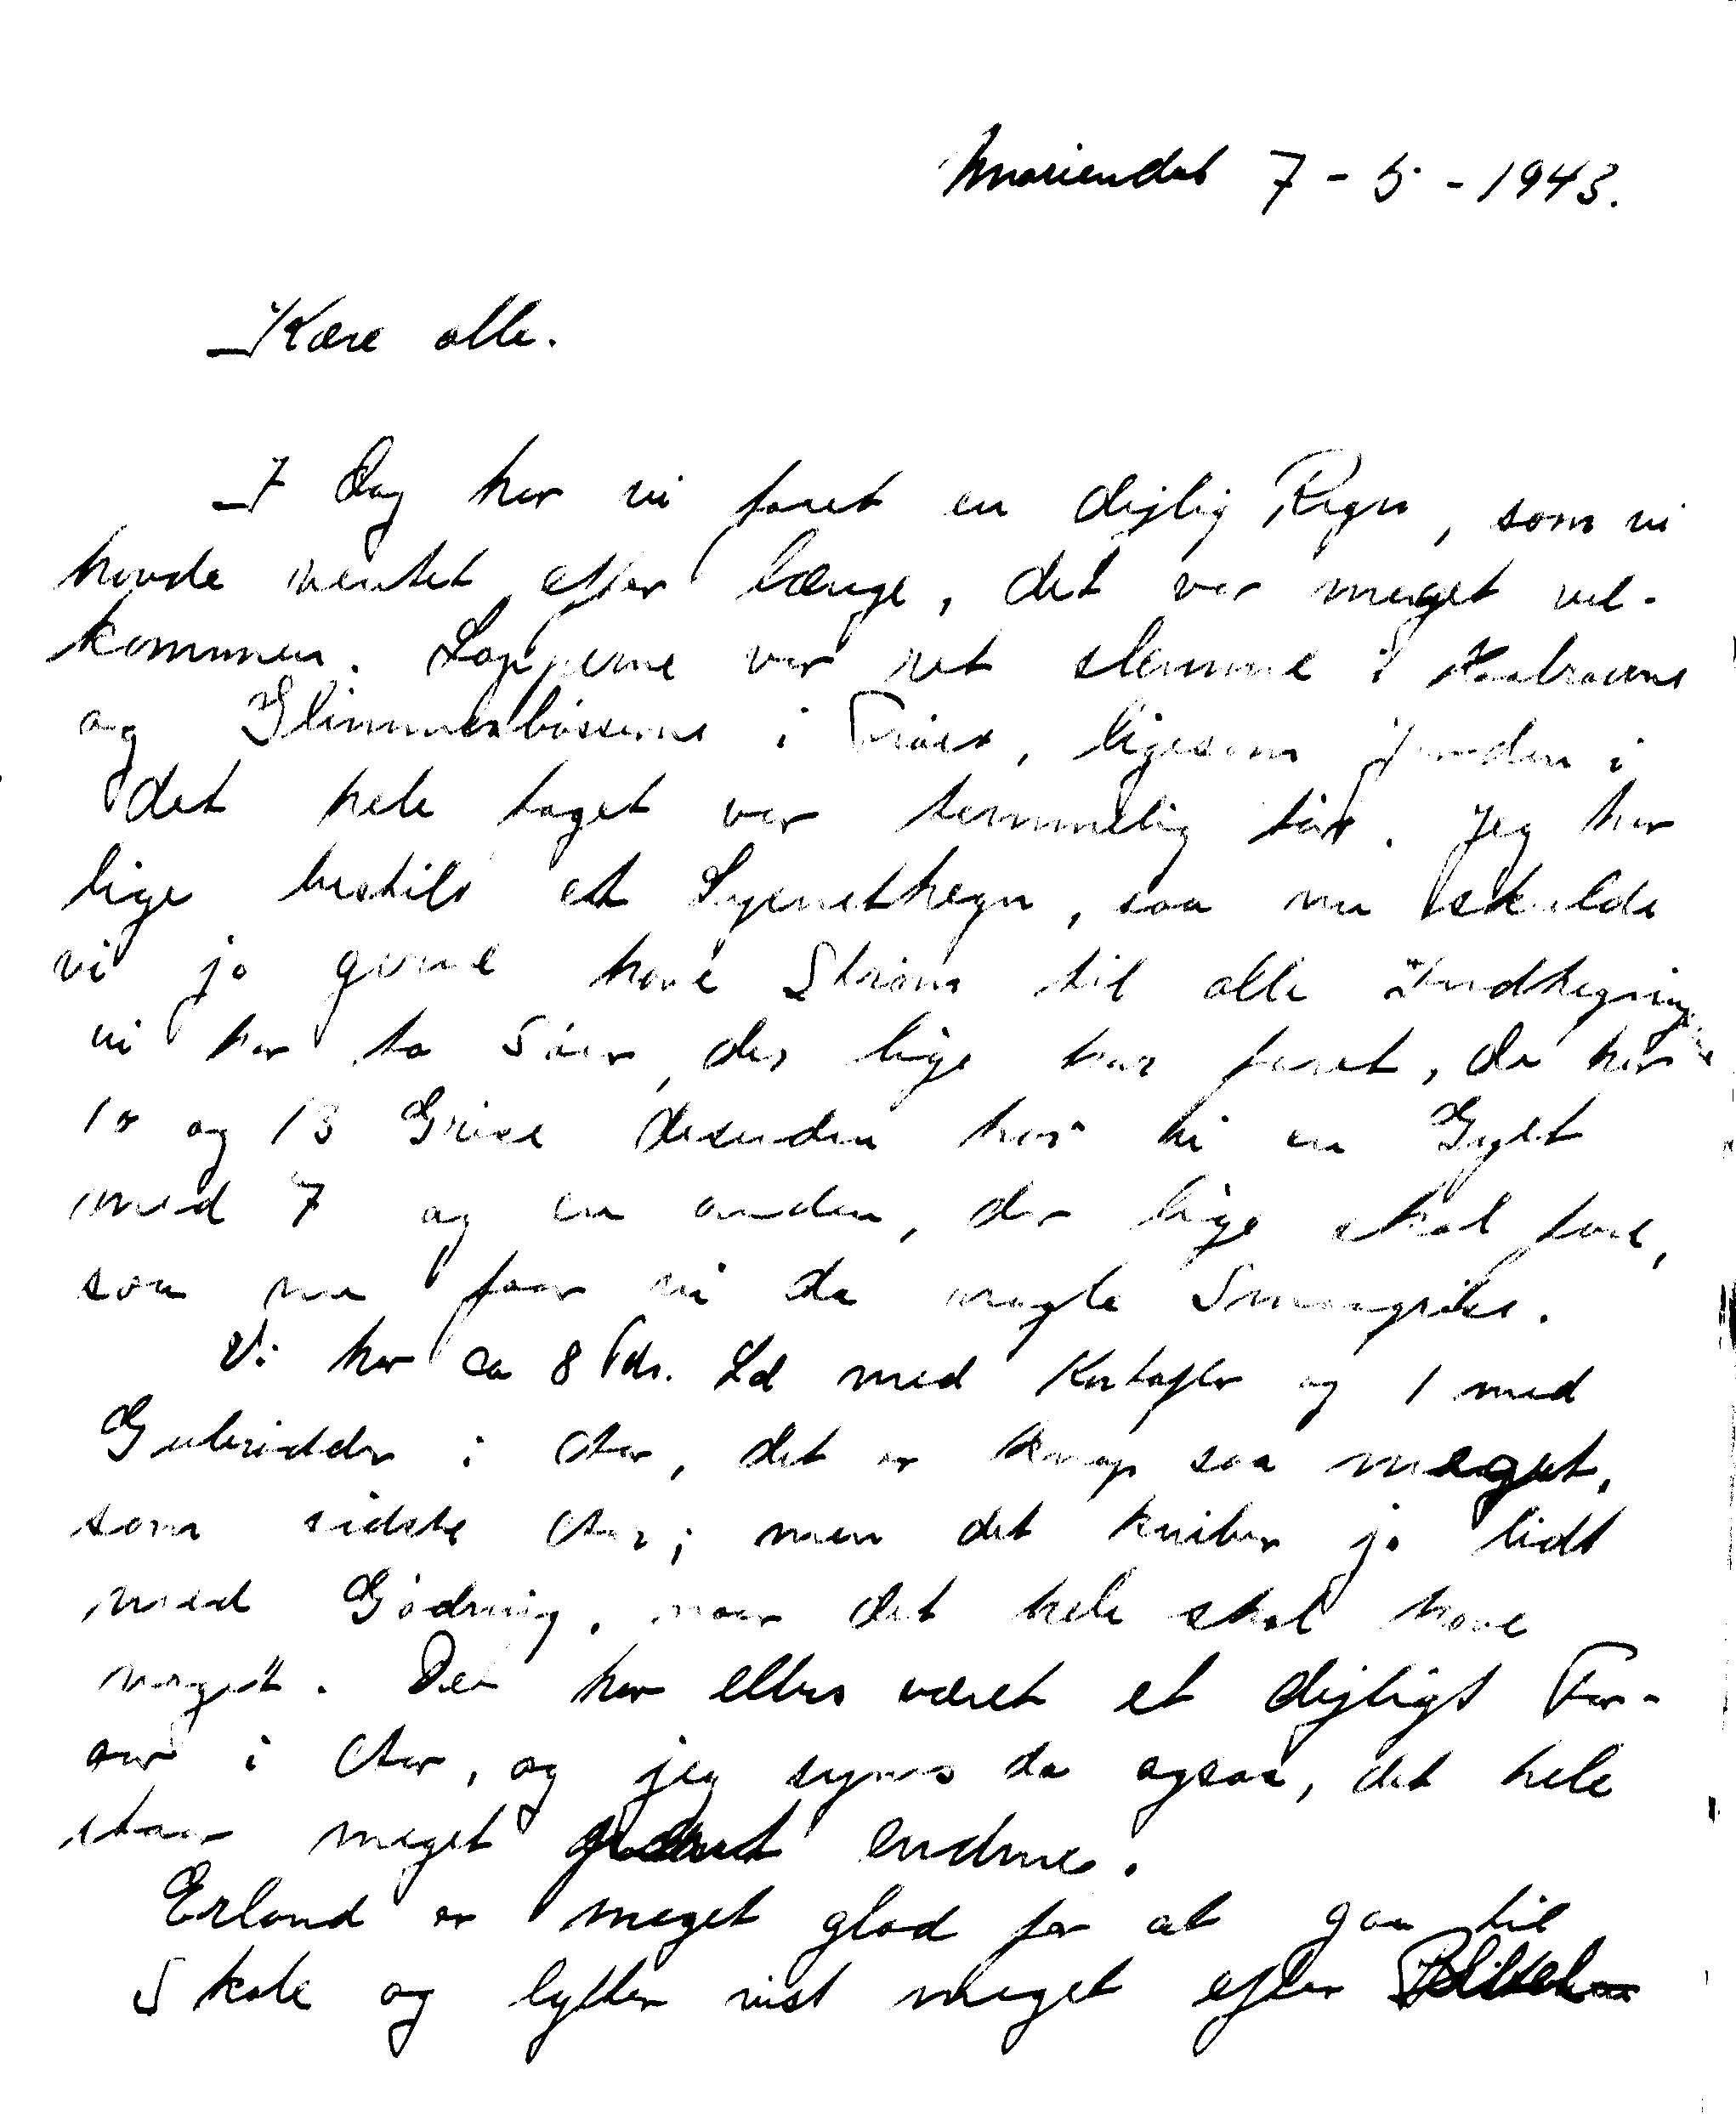 Mariendal 7-5-1943.
Kære alle.
I Dag har vi faaet en dejlig Regn, som vi
havde ventet efter længe, det var meget vel-
kommen. Lopperne var ret slemme i Kaalroerne
og Glimmerbøsserne i Frøet, ligesom Jorden i
det hele taget var temmelig tør. Jeg har
lige bestilt et Lysnethegn, saa nu skulde
vi jo gerne have Strøm til alle Indhegninger
vi har to Søer, der lige har faret, de har
10 og 13 Grise desuden har vi en Gylt
med 7 og en anden, der lige skal fare,
saa nu faar vi da nogle Smaagrise.
Vi har ca 8 Tdr. Ld med Kartofler og 1 med
Gulerødder i Aar, det er knap saa meget,
som sidste Aar; men det kniber jo lidt
med Gødning, naar det hele skal have
noget. Det har ellers været et dejligt For-
aar i Aar, og jeg synes da ogsaa, det hele
staar meget endnu.
Erland er meget glad for at gaa til
Skole og lytter vist meget efter